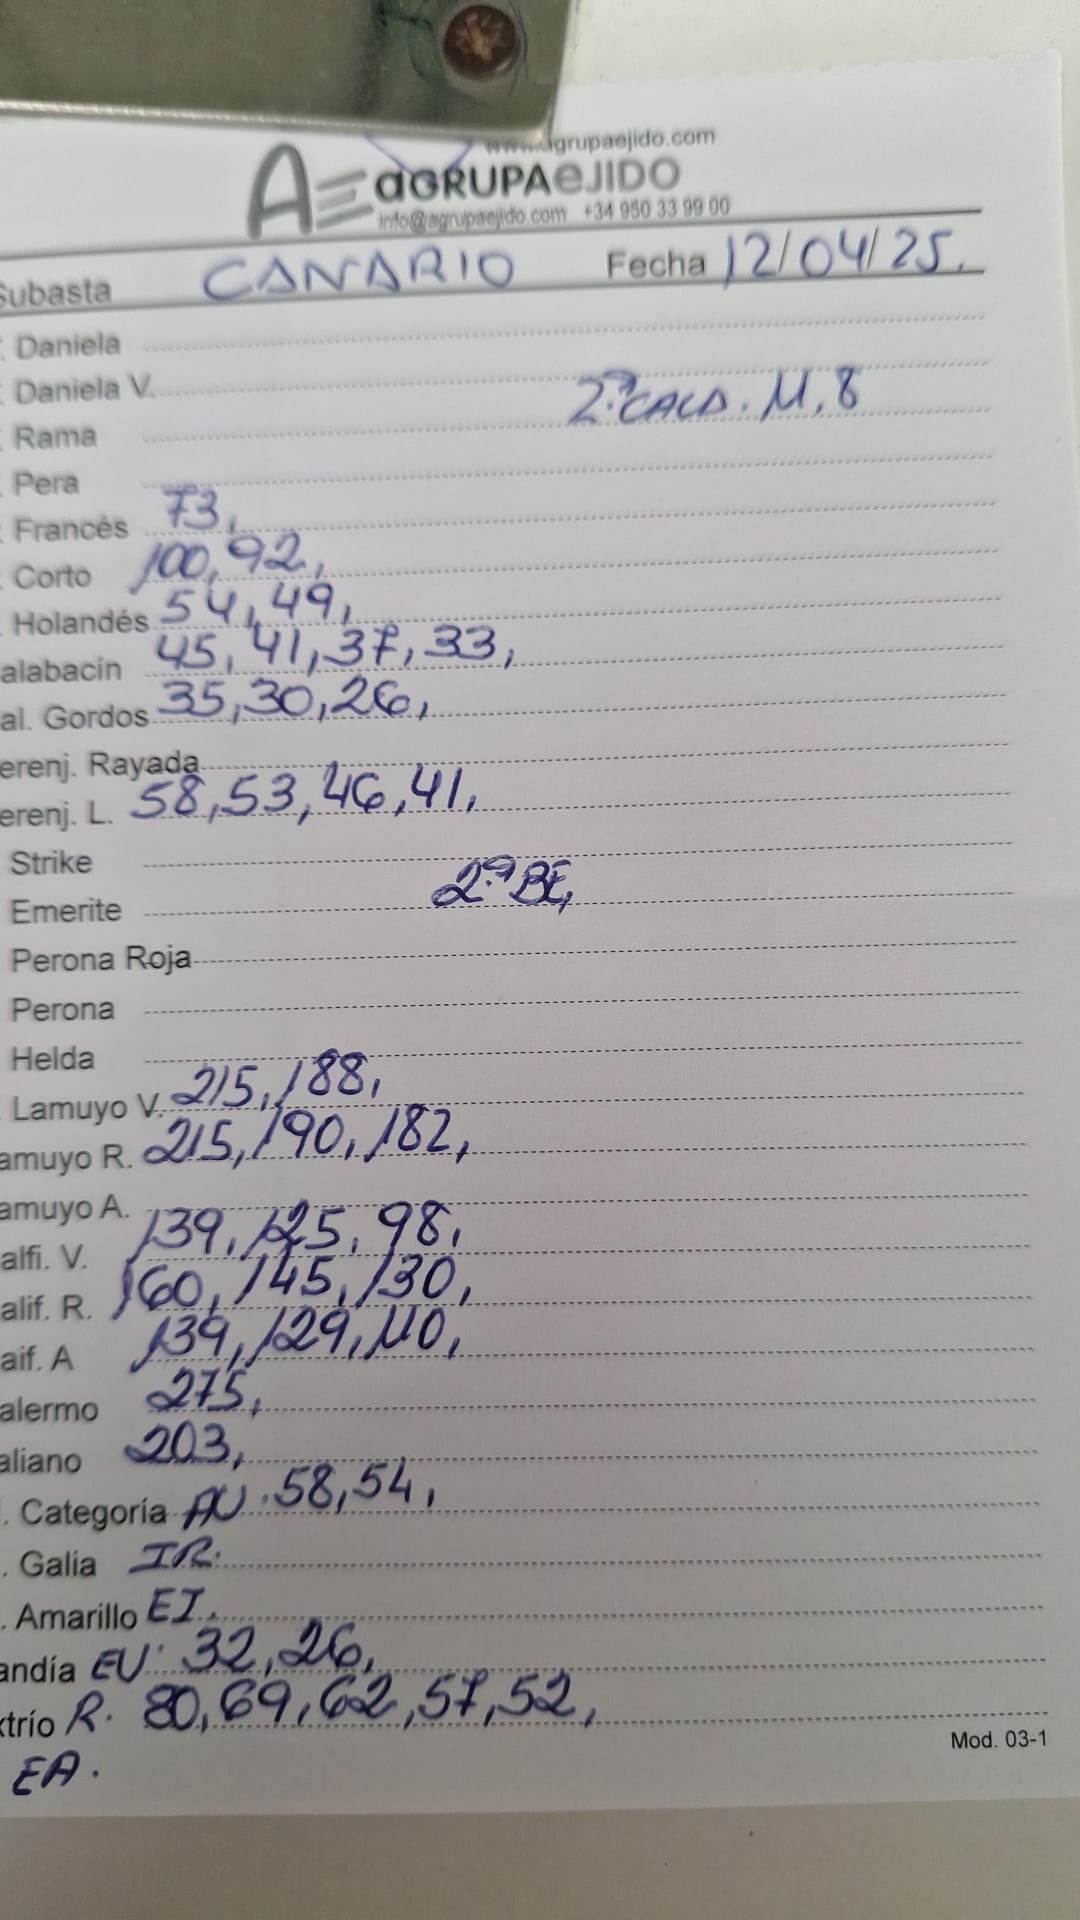 www.agrupaejido.com
AE aGRUPAeJIDO
info@agrupaejido.com +34 950 33 99 00
Subasta CANARIO Fecha 12/04/25.
. Daniela
. Daniela V.
2.ª CALA. 11, 8
. Rama
. Pera
. Francés 73,
. Corto 100, 92,
. Holandés 54, 49,
alabacín 45, 41, 37, 33,
al. Gordos 35, 30, 26,
erenj. Rayada
erenj. L. 58, 53, 46, 41,
Strike
2.ª BE,
Emerite
Perona Roja
Perona
Helda
. Lamuyo V. 215, 188,
amuyo R. 215, 190, 182,
amuyo A.
alfi. V. 139, 125, 98,
alif. R. 160, 145, 130,
aif. A 139, 129, 110,
alermo 275,
aliano 203,
. Categoría AU. 58, 54,
. Galia IR.
. Amarillo EI.
andía EV. 32, 26,
xtrío R. 80, 69, 62, 57, 52,
EA.
Mod. 03-1